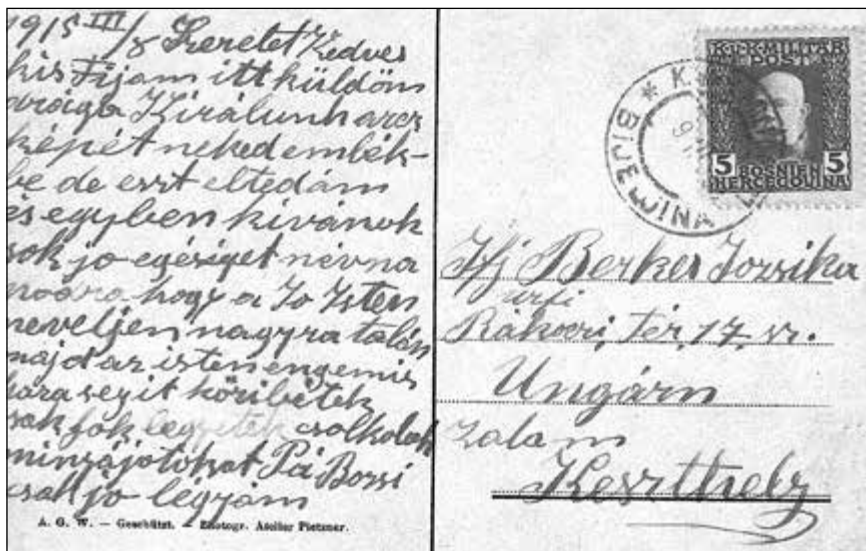 1915 III/8 Szeretet Kedves
kis Fijam itt küldöm
drága Királunk arcz
képét neked emlék-
be de eszt eltedám
és egyben kivánok
sok jo egéséget névna
hogy a Jo Isten
neveljen nagyra talán
majd az isten engemis
haza segit köribétek
csak jok legyetek csolkolak
minyájotokat Pá Bozsi
csak jo légyám
A. G. W. — Geschützt. — Photogr. Atelier Pietzner.
K.u.K. MILITÄR
POST
5 BOSNIEN 5
HERCEGOVINA
BIJELJINA
Ifj Berkes Jozsika
urfi
Rákoczi, Tér, 17, sz.
Ungárn
Zalam
Keszthely